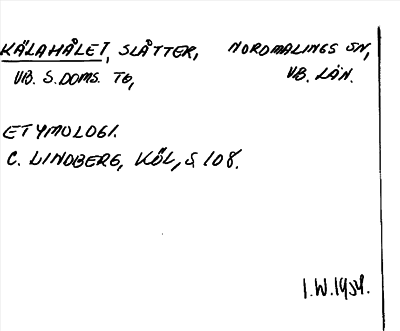 KÄLAHÅLET, SLÅTTER, NORDMALINGS SN,
VB. S. DOMS. TG, VB. LÄN.
ETYMOLOGI.
C. LINDBERG, KÖL, S 108.
I.W.1954.